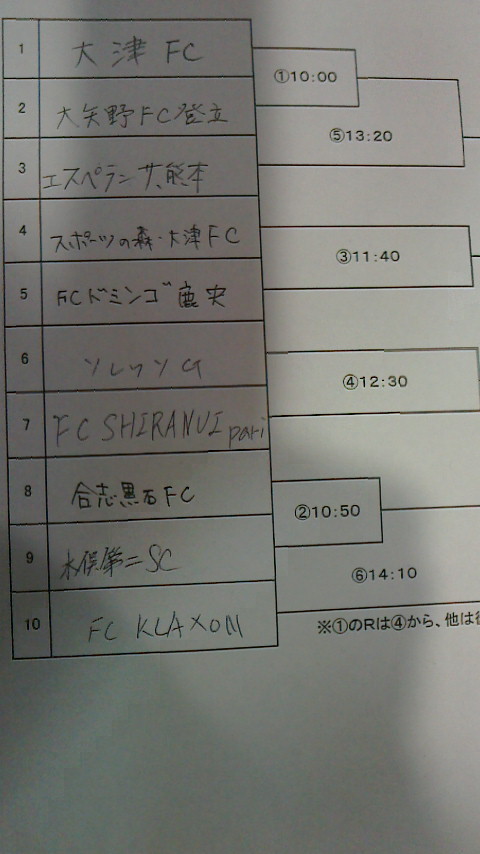 1 大津 FC
①10:00
2 大矢野FC登立
⑤13:20
3 エスペランサ熊本
4 スポーツの森・大津FC
③11:40
5 FCドミンゴ鹿央
6 ソレッソG
④12:30
7 FC SHIRANUI pari
8 合志黒石FC
②10:50
9 水俣第二SC
⑥14:10
10 FC KLAXON
※①のRは④から、他は